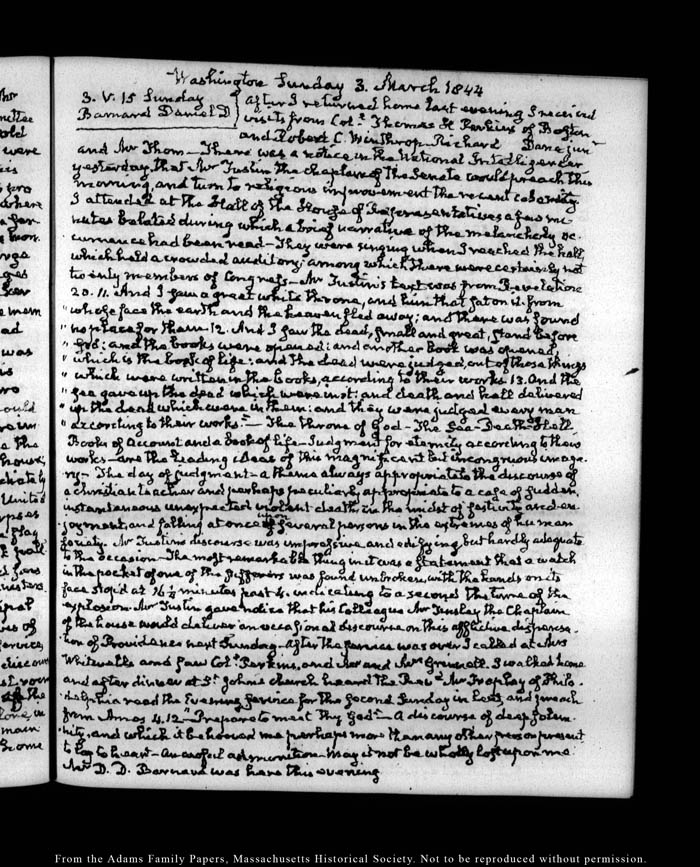 Washington Sunday 3. March 1844
3. V. 15 Sunday
Barnard Daniel D
After I returned home last evening I received
visits from Col.ᵉ Thomas H Perkins of Boston
and Robert C. Winthrop Richard Dane junʳ
and Mr Thom — There was a notice in the National Intelligencer
yesterday, that Mr Tustin the chaplain of the Senate would preach this
morning, and turn to religious improvement the recent calamity.
I attended at the Hall of the House of Representatives a few mi-
nutes belated during which a brief narrative of the melancholy oc-
currence had been read — They were singing when I reached the hall,
which held a crowded auditory; among which there were certainly not
twenty members of Congress — Mr Tustin's text was from Revelation
20. 11. And I saw a great white throne, and him that sat on it. from
" whose face the earth and the heaven fled away; and there was found
" no place for them 12. And I saw the dead, small and great, stand before
" God: and the books were opened: and another book was opened,
" which is the book of life: and the dead were judged, out of those things
" which were written in the books, according to their works 13. And the
" sea gave up the dead which were in it: and death and hell delivered
" up the dead which were in them: and they were judged every man
" according to their works." — The throne of God — The Sea — Death — Hell
Books of Account and a book of life — Judgment for eternity according to their
works — are the leading ideas of this magnificent but incongruous image-
ry — The day of judgment — a theme always appropriate to the discourse of
a christian teacher and perhaps peculiarly appropriate to a case of sudden,
instantaneous unexpected violent death in the midst of festivity and en-
joyment, and falling at once upon several persons in the extremes of human
society. Mr Tustin's discourse was impressive and edifying, but hardly adequate
to the occasion — The most remarkable thing in it was a statement that a watch
in the pocket of one of the sufferers was found unbroken, with the hands on its
face stop'd at 16½ minutes past 4. indicating to a second the time of the
explosion. Mr Tustin gave notice that his Colleague Mr Tinsley the Chaplain
of the house would deliver an occasional discourse on this afflictive dispensa-
tion of Providence next Sunday. After the service was over I called at Mrs
Whitwell's and saw Col.ᵉ Perkins, and Mr and Mrs Grinnell. I walked home
and after dinner at Sᵗ John's church heard the Revᵈ Mr of Phila-
delphia read the Evening service for the second Sunday in Lent, and preach
from Amos 4. 12. "Prepare to meet thy God" — A discourse of deep solem-
nity, and which it behooved me perhaps more than any other person present
to lay to heart — An awful admonition — May it not be wholly lost upon me
Mr D. D. Barnard was here this evening
From the Adams Family Papers, Massachusetts Historical Society. Not to be reproduced without permission.